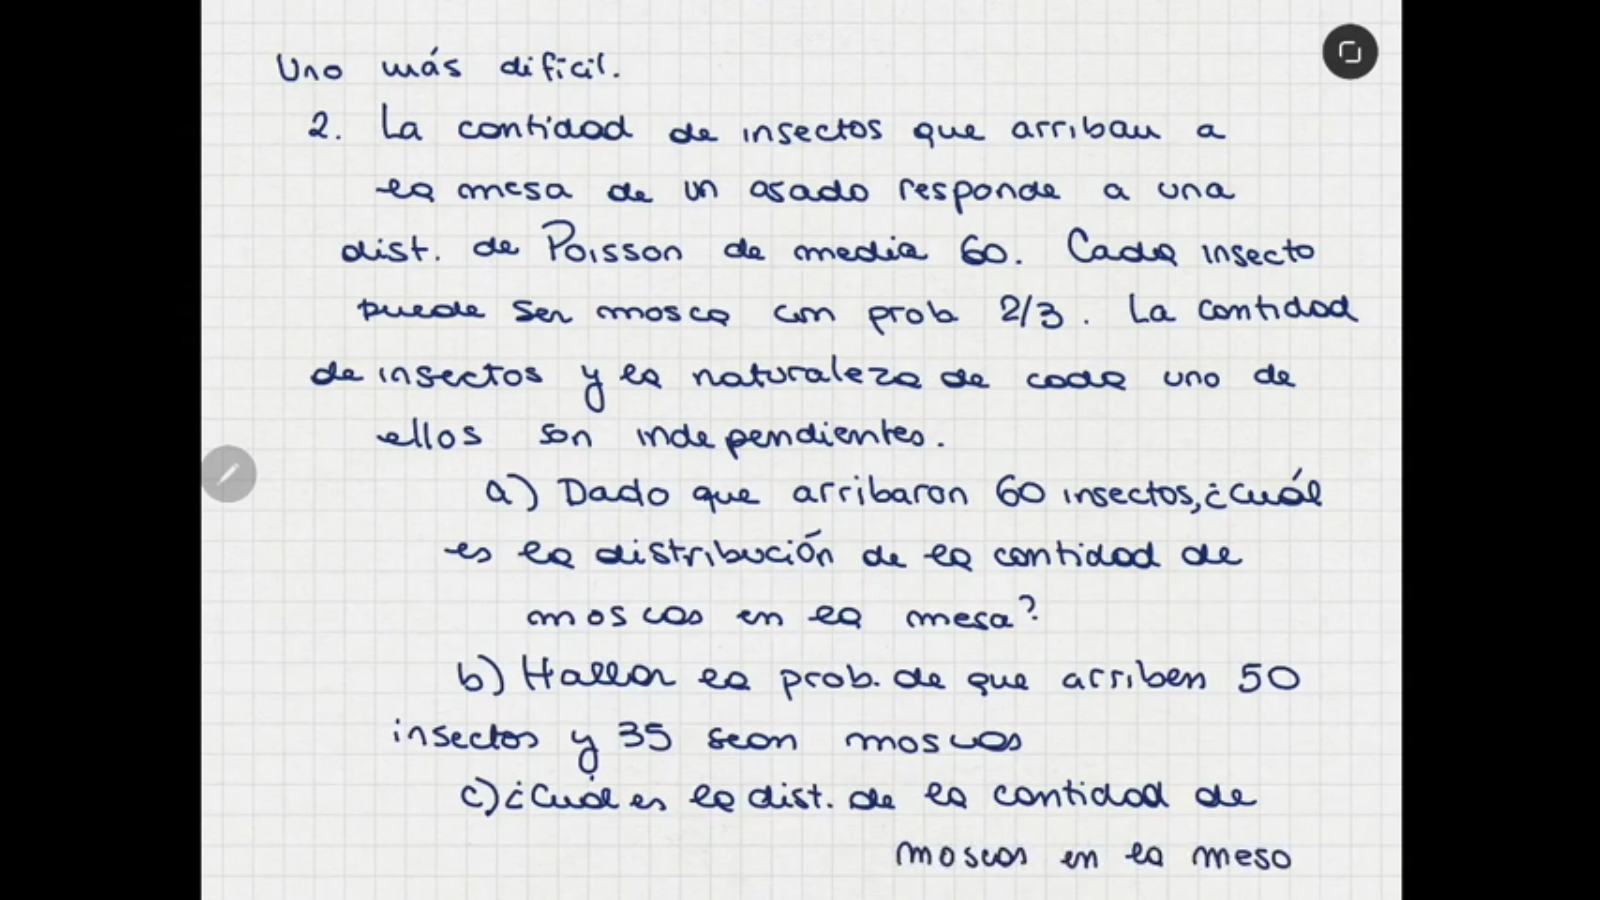 Uno más dificil.
2. La cantidad de insectos que arriban a
la mesa de un asado responde a una
dist. de Poisson de media 60. Cada insecto
puede ser mosca con prob 2/3. La cantidad
de insectos y la naturaleza de cada uno de
ellos son independientes.
a) Dado que arribaron 60 insectos, ¿cuál
es la distribución de la cantidad de
moscas en la mesa?
b) Hallar la prob. de que arriben 50
insectos y 35 sean moscas
c) ¿Cuál es la dist. de la cantidad de
moscas en la mesa